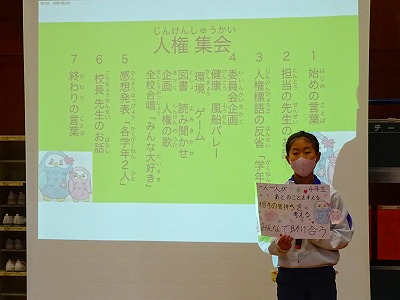 じんけんしゅうかい
人権 集会
1 始めの言葉
2 担当の先生の
3 人権標語の反省「学年
4 委員会企画
健康 風船バレー
環境 ゲーム
図書 読み聞かせ
企画 人権の歌
全校合唱「みんな大好き」
5 感想発表「各学年2人」
6 校長先生のお話
7 終わりの言葉
一人一人が
あとのことを考え
相手の気持ちを
考える
みんなで助け合う